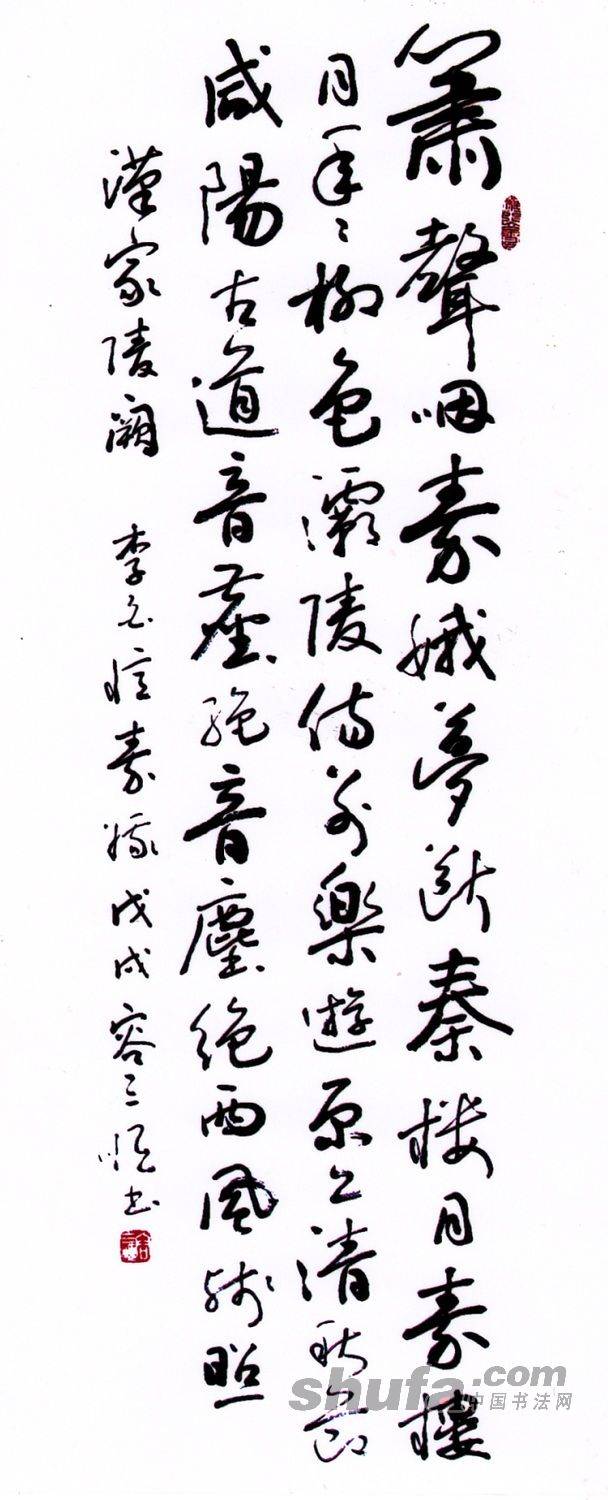 簫聲咽秦娥夢斷秦樓月秦樓
月年〻柳色灞陵傷別樂遊原上清秋節
咸陽古道音塵絕音塵絕西風殘照
漢家陵闕 李白憶秦娥 戊戌 容三 书
shufa.com
中国书法网